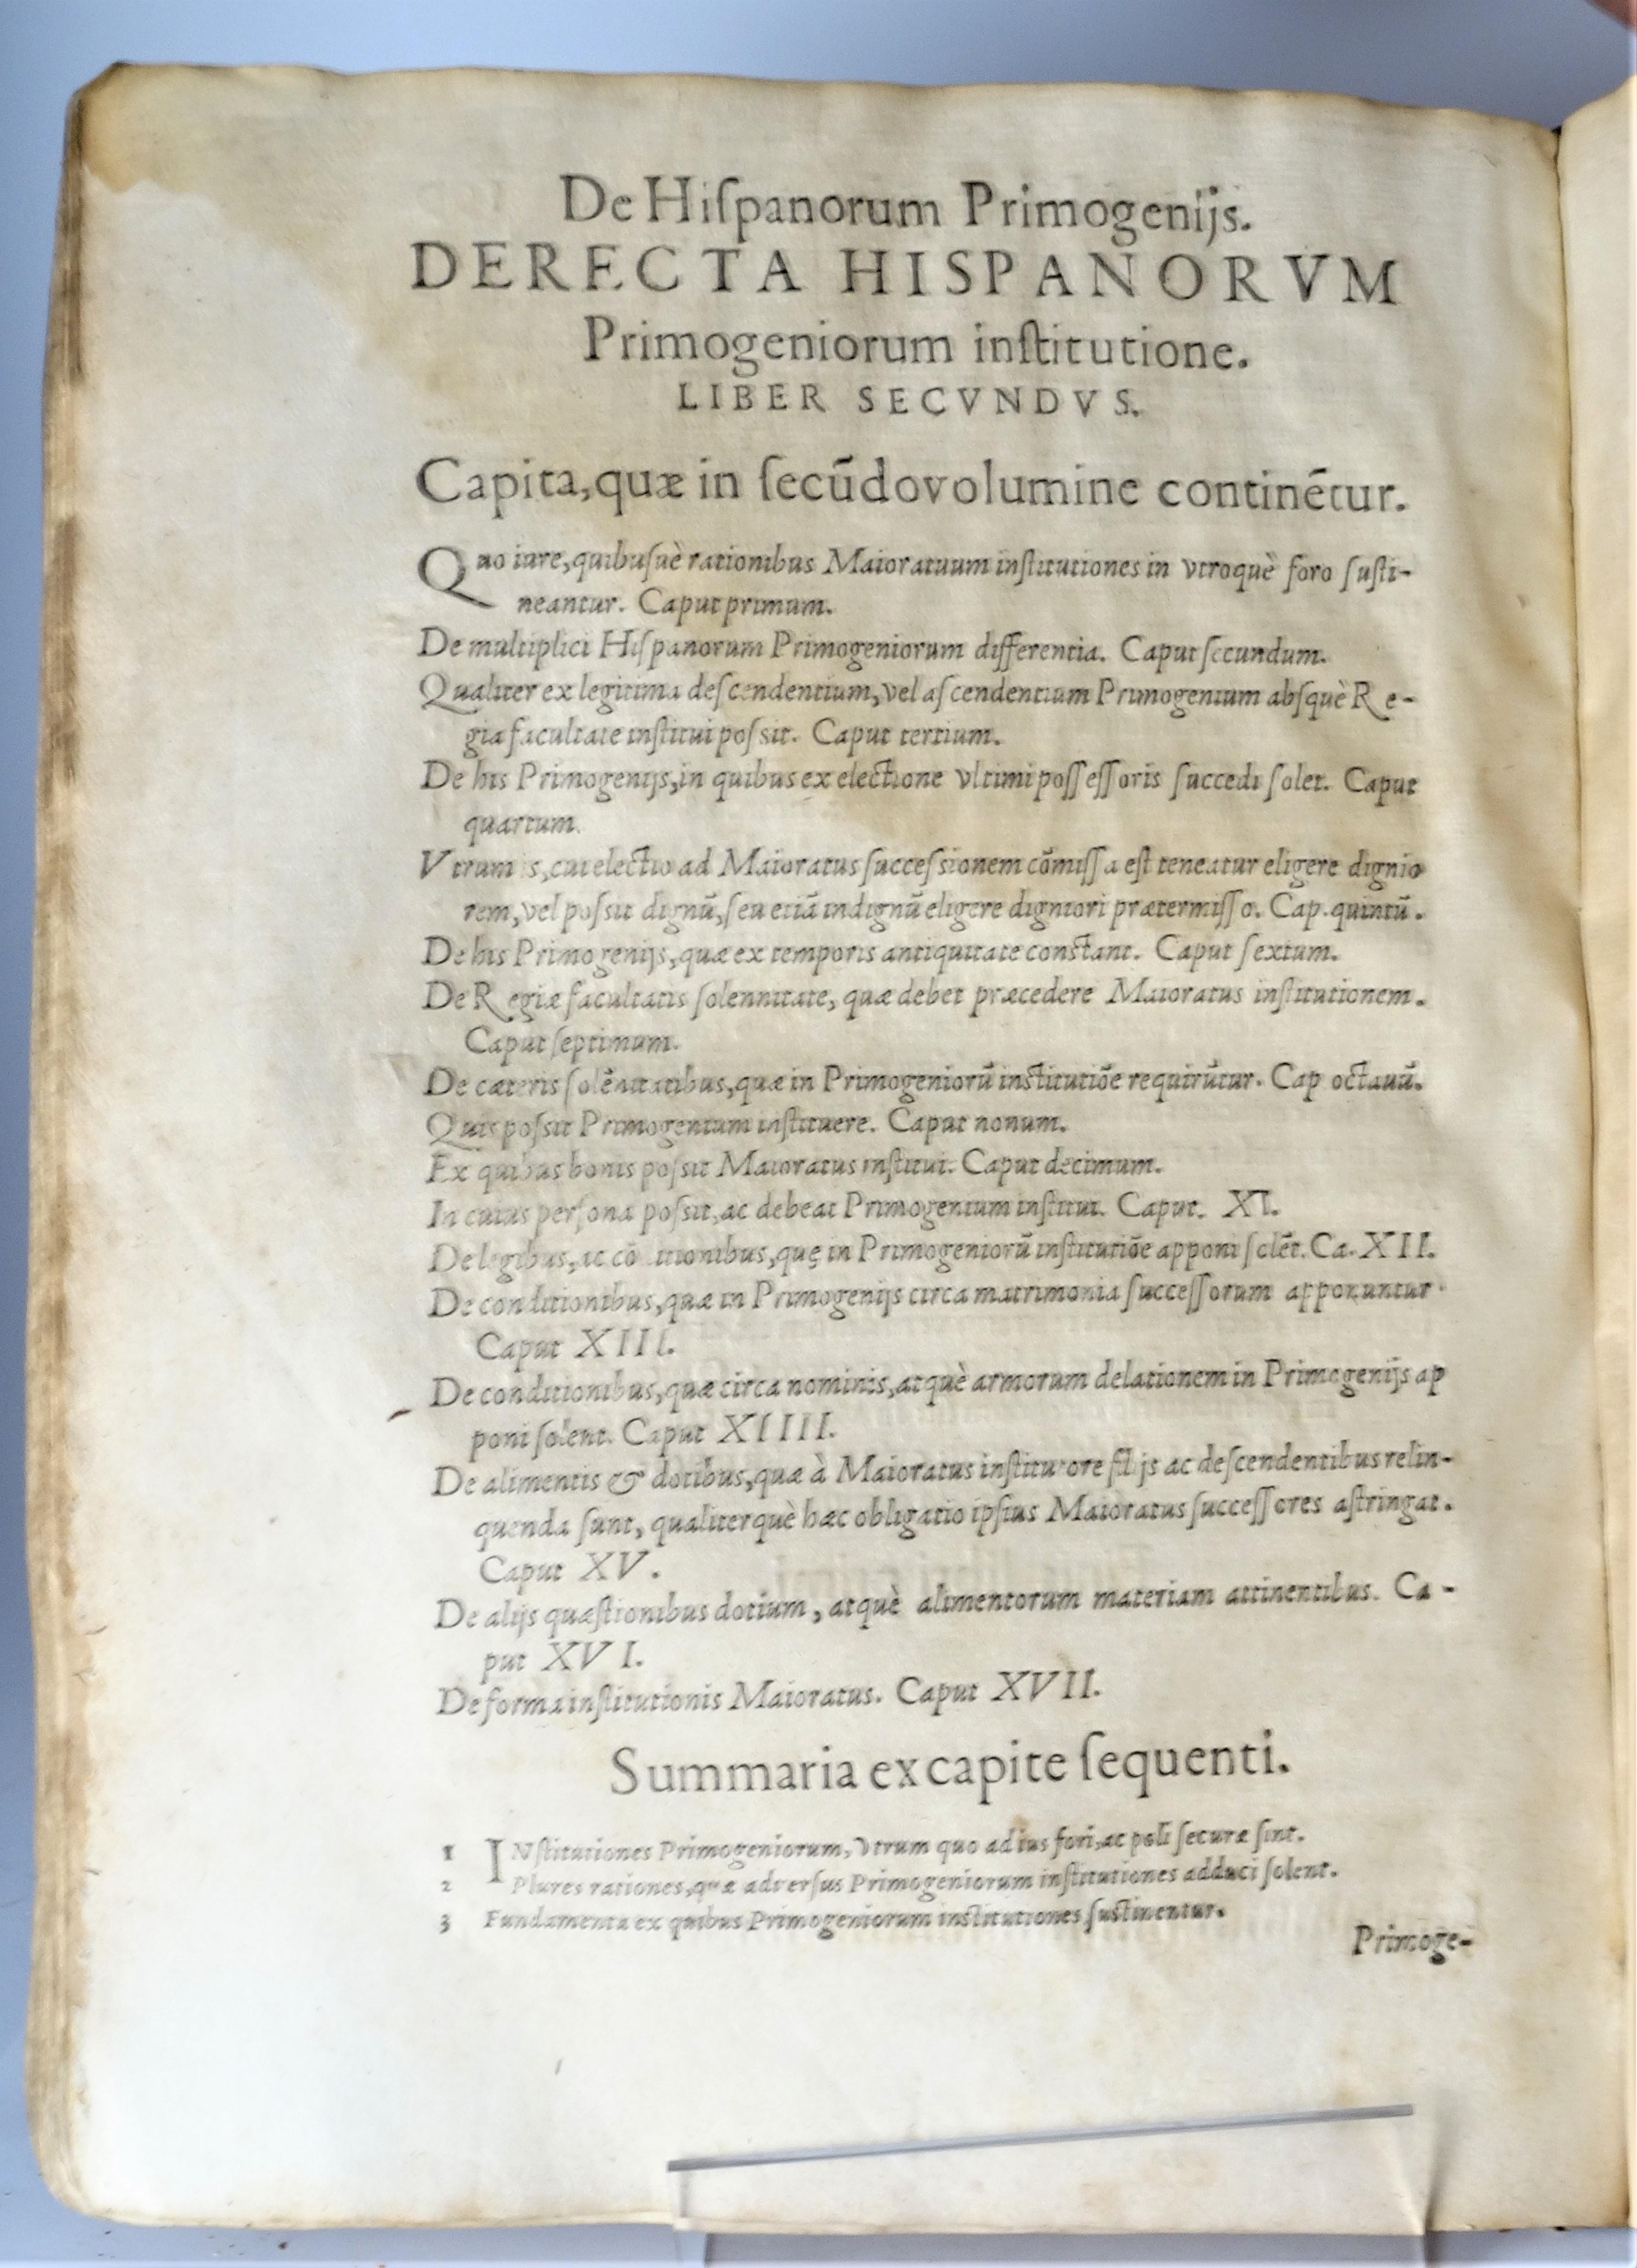 De Hiſpanorum Primogenijs.
DERECTA HISPANORVM
Primogeniorum inſtitutione.
LIBER SECVNDVS.
Capita,quæ in ſecūdo volumine continētur.
Quo iure,quibuſuè rationibus Maioratuum inſtitutiones in vtroquè foro ſuſti-
neantur. Caput primum.
De multiplici Hiſpanorum Primogeniorum differentia. Caput ſecundum.
Qualiter ex legitima deſcendentium,vel aſcendentium Primogenium abſquè Re-
gia facultate inſtitui poſsit. Caput tertium.
De his Primogenijs,in quibus ex electione vltimi poſſeſſoris ſuccedi ſolet. Caput
quartum.
Vtrum is,cui electio ad Maioratus ſucceſsionem cōmiſſa eſt teneatur eligere dignio
rem,vel poſsit dignū,ſeu etiā indignū eligere digniori prætermiſſo. Cap.quintū.
De his Primogenijs,quæ ex temporis antiquitate conſtant. Caput ſextum.
De Regiæ facultatis ſolennitate, quæ debet præcedere Maioratus inſtitutionem.
Caput ſeptimum.
De cæteris ſolēnitatibus,quæ in Primogeniorū inſtitutiōe requirūtur. Cap octauū.
Quis poſsit Primogenium inſtituere. Caput nonum.
Ex quibus bonis poſsit Maioratus inſtitui. Caput decimum.
In cuius perſona poſsit,ac debeat Primogenium inſtitui. Caput. XI.
De legibus,ac cō itionibus,quę in Primogeniorū inſtitutiōe apponi ſolēt. Ca. XII.
De conditionibus,quæ in Primogenijs circa matrimonia ſucceſſorum apponuntur.
Caput XIII.
De conditionibus,quæ circa nominis,atquè armorum delationem in Primogenijs ap
poni ſolent. Caput XIIII.
De alimentis & dotibus,quæ à Maioratus inſtitutore filijs ac deſcendentibus relin-
quenda ſunt, qualiterquè hæc obligatio ipſius Maioratus ſucceſſores aſtringat.
Caput XV.
De alijs quæſtionibus dotium, atquè alimentorum materiam attinentibus. Ca-
put XVI.
De forma inſtitutionis Maioratus. Caput XVII.
Summaria ex capite ſequenti.
1 INſtitutiones Primogeniorum,vtrum quo ad ius fori,ac poli ſecuræ ſint.
2 Plures rationes,quæ aduerſus Primogeniorum inſtitutiones adduci ſolent.
3 Fundamenta ex quibus Primogeniorum inſtitutiones ſuſtinentur.
Primoge-